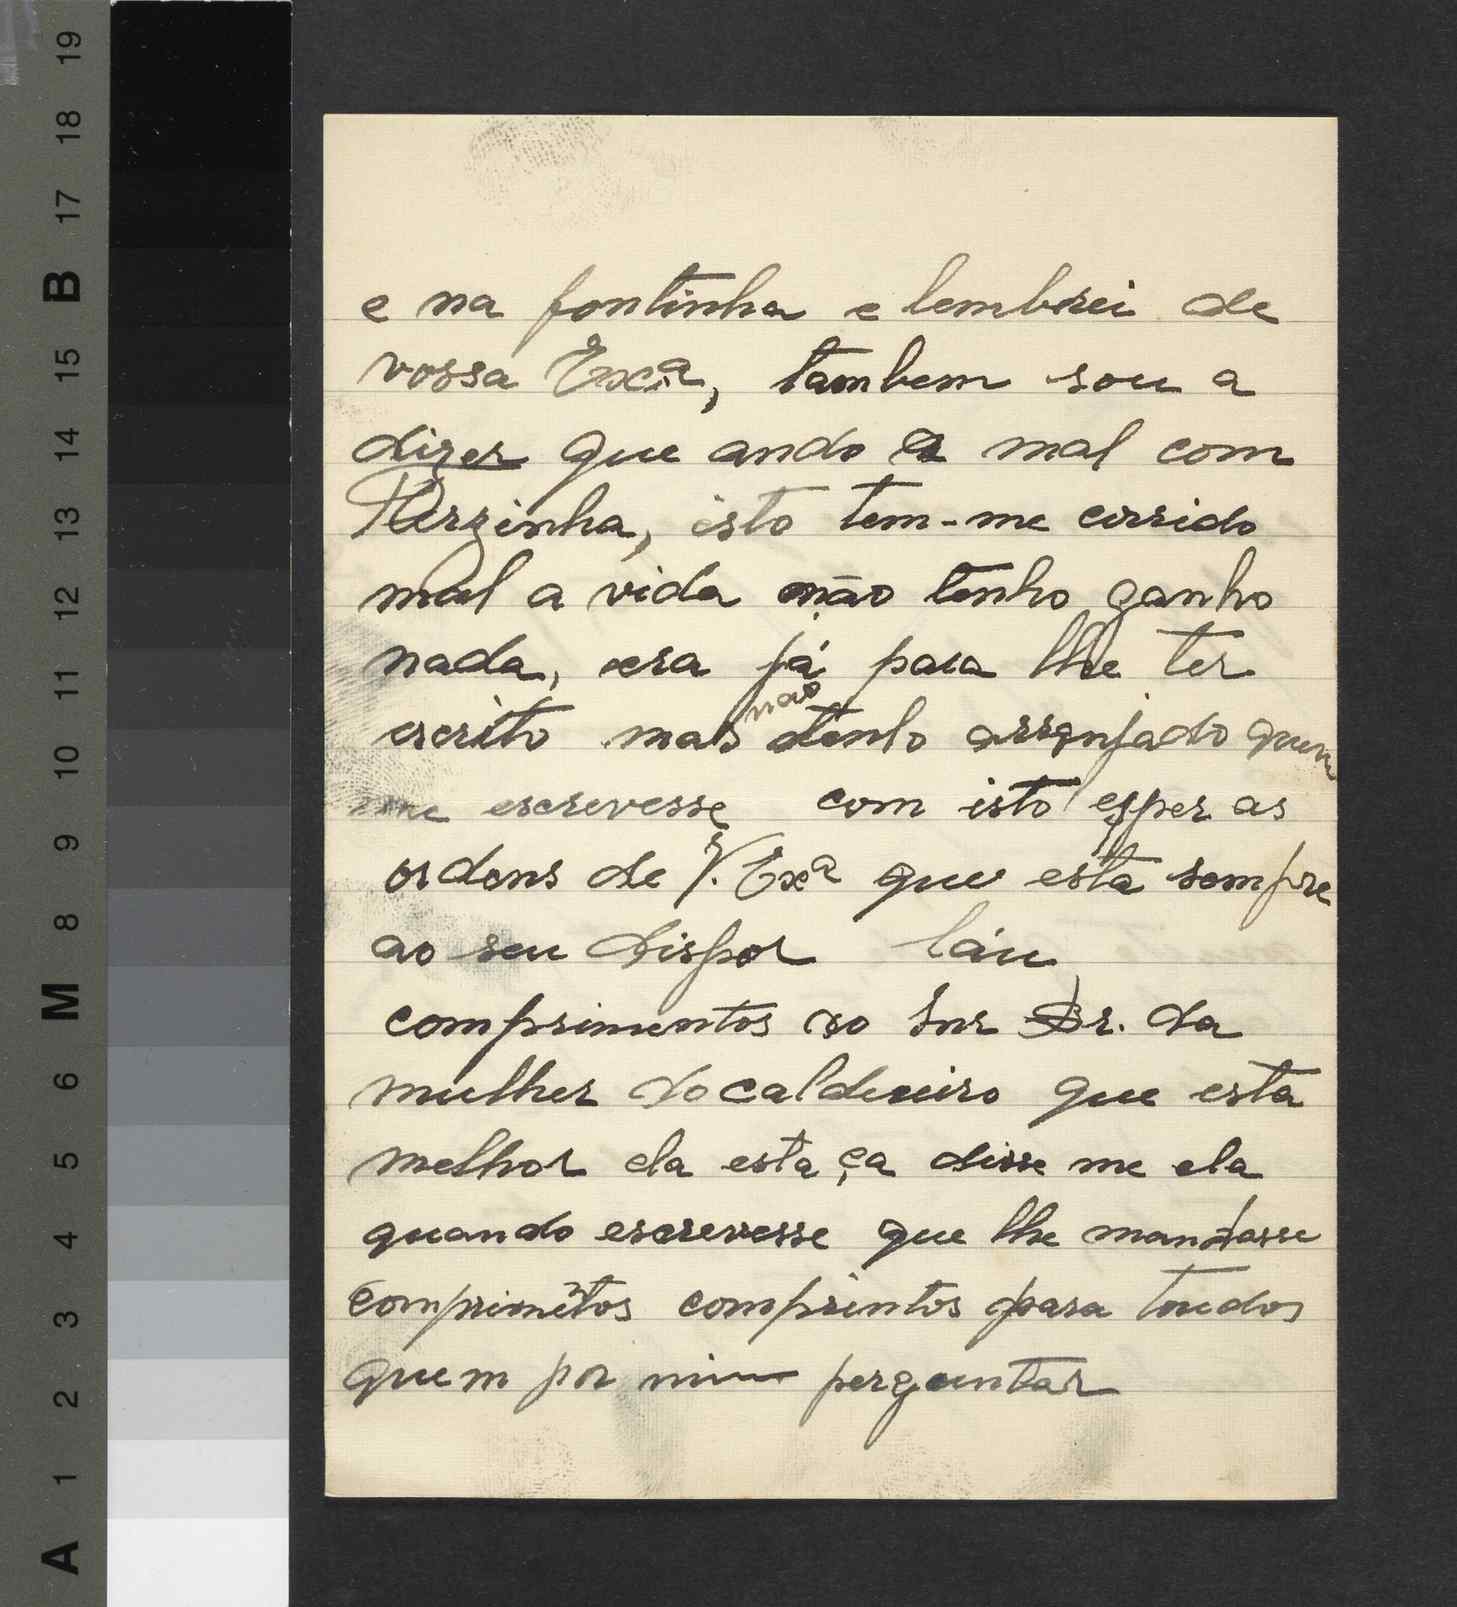 e na fontinha e lembrei de
vossa Exª, tambem sou a
dizer que ando a mal com
isto tem-me corrido
mal a vida não tenho ganho
nada, era já para lhe ter
escrito mas não tenho arranjado quem
me escrevesse com isto esper as
ordens de V. Exª que esta sempre
ao seu dispor
comprimentos ao Snr Dr. da
mulher do caldeeiro que esta
melhor ela esta ça disse me ela
quando escrevesse que lhe mandasse
comprimẽtos comprintos para toudos
quem por mim perguntar
19
18
17
B
15
14
13
12
11
10
9
8
M
6
5
4
3
2
1
A